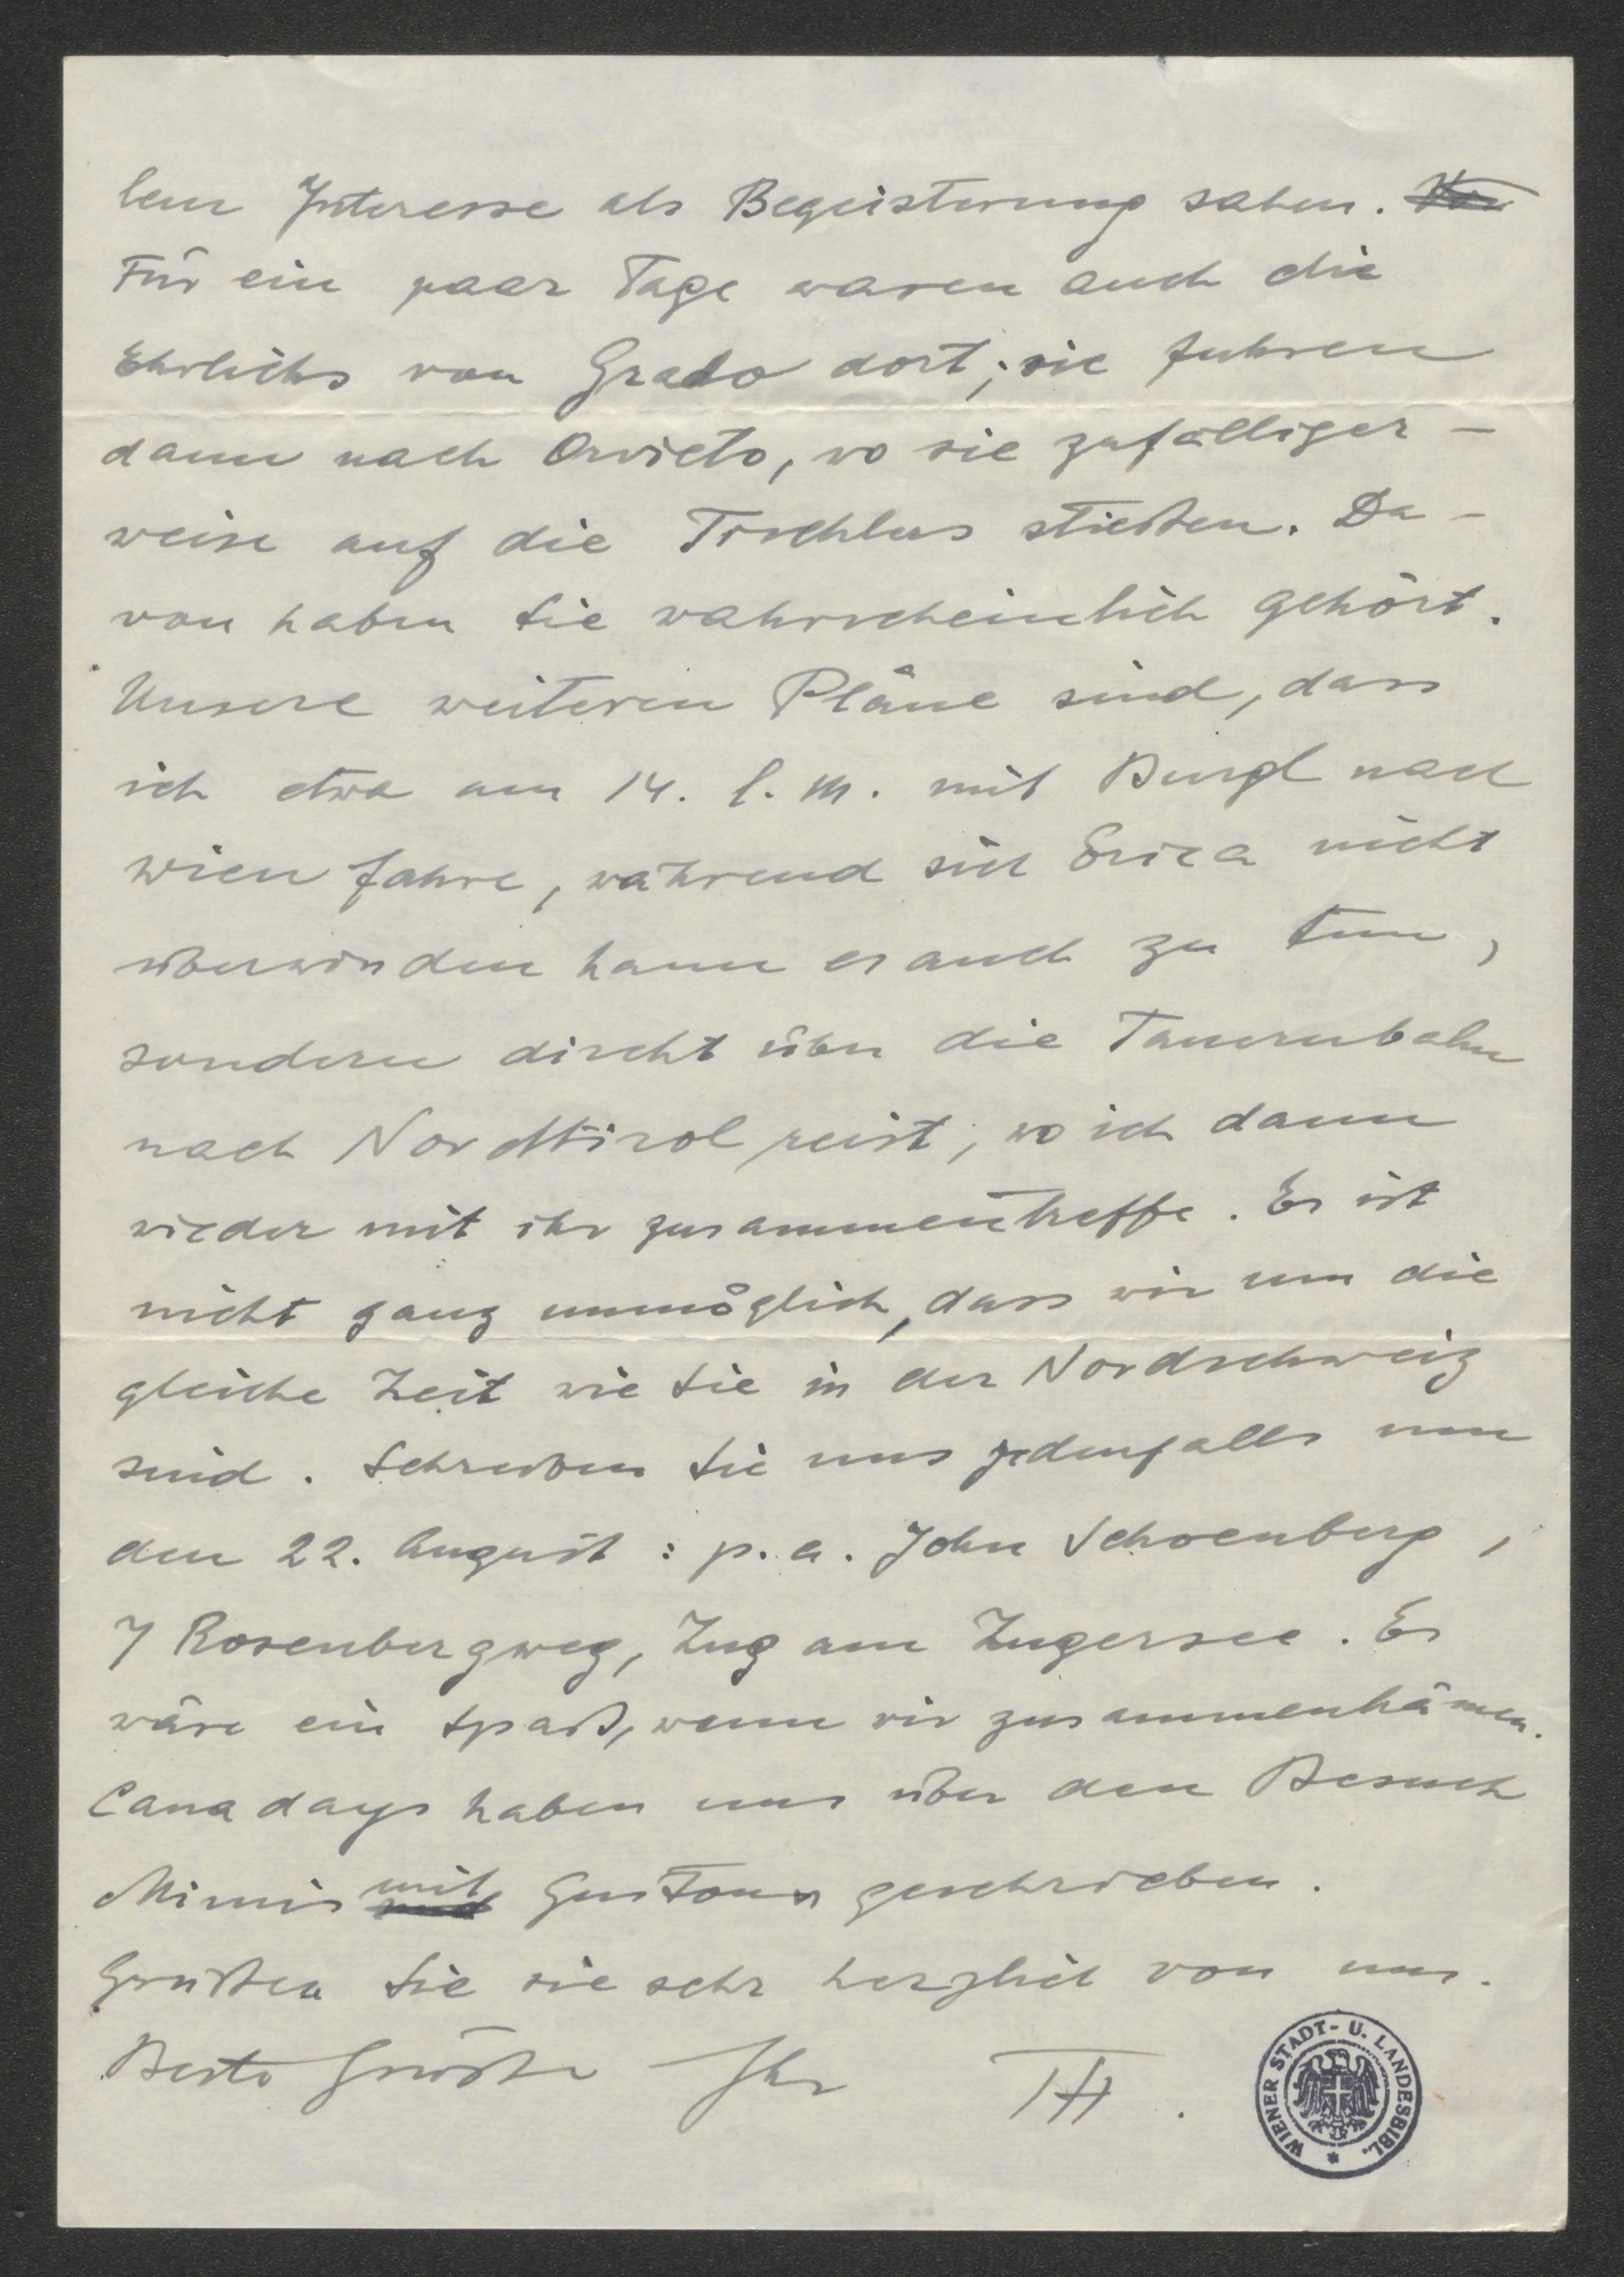 lem Interesse als Begeisterung sahen.
Für ein paar Tage waren auch die
Ehrlichs von Grado dort; sie fuhren
dann nach Orvieto, wo sie zufälliger-
weise auf die Tischlers stießen. Da-
von haben Sie wahrscheinlich gehört.
Unsere weiteren Pläne sind, dass
ich etwa am 14. l. M. mit Burgl nach
Wien fahre, während sich Erica nicht
überwinden kann es auch zu tun,
sondern direkt über die Tauernbahn
nach Nordtirol reist, wo ich dann
wieder mit ihr zusammentreffe. Es ist
nicht ganz unmöglich, dass wir um die
gleiche Zeit wie Sie in der Nordschweiz
sind. Schreiben Sie uns jedenfalls um
den 22. August: p. a. John Schoenberg,
7 Rosenbergweg, Zug am Zugersee. Es
wäre ein Spaß, wenn wir zusammenkämen.
Canadays haben uns über den Besuch
Mimis mit geschrieben.
Grüßen Sie sie sehr herzlich von uns.
Beste Grüße Ihr TH.
WIENER STADT- U. LANDESBIBL.